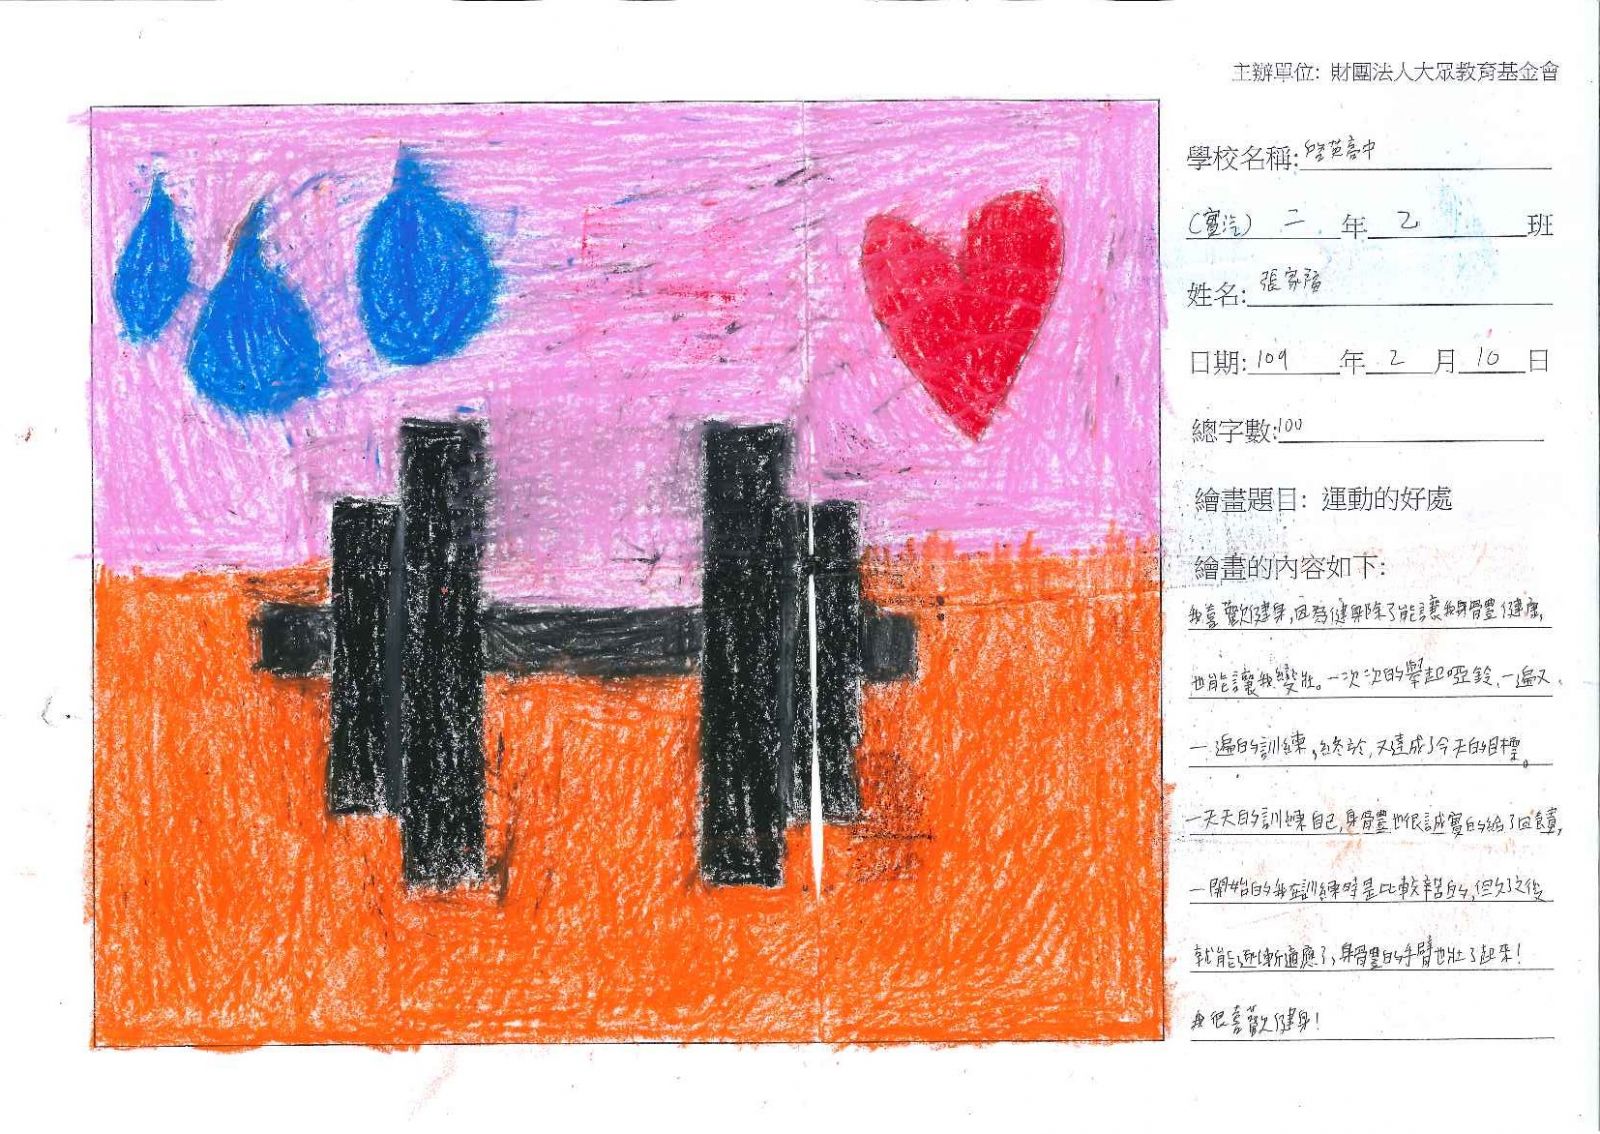 主辦單位: 財團法人大眾教育基金會
學校名稱: 英高中
(實汽) 二 年 乙 班
姓名: 張家
日期: 109 年 2 月 10 日
總字數: 100
繪畫題目: 運動的好處
繪畫的內容如下:
我喜歡健身,因為健身除了能讓我身體健康,
也能讓我變壯。一次次的舉起啞鈴,一遍又
一遍的訓練,終於,又達成了今天的目標。
一天天的訓練自己,身體也很誠實的給了回饋,
一開始的我在訓練時是比較辛苦的,但久了之後
就能逐漸適應了,身體的手臂也壯了起來!
我很喜歡健身!